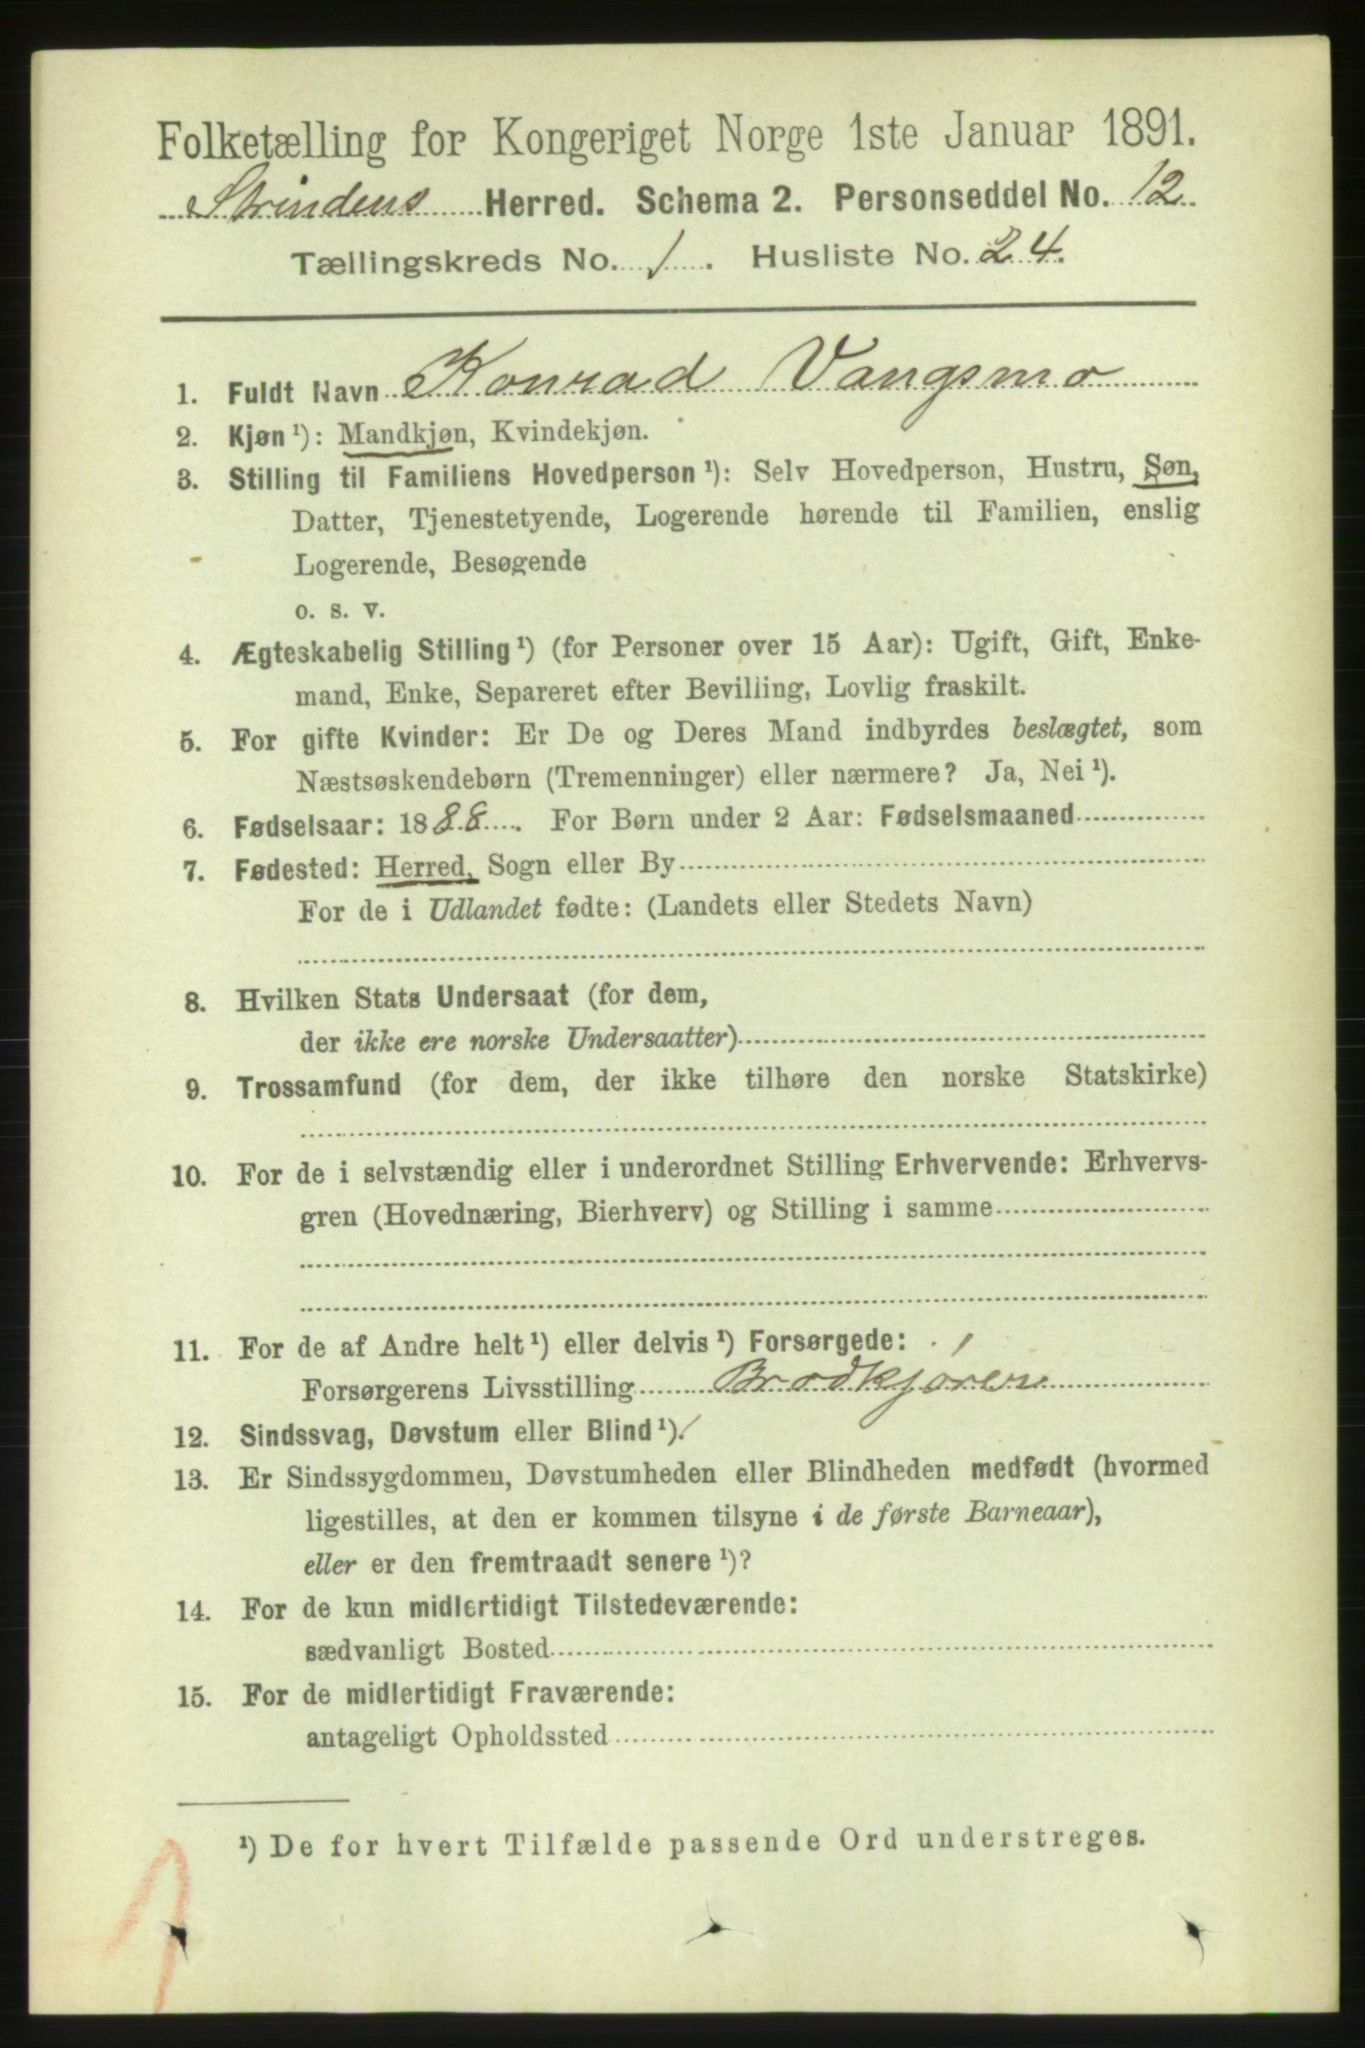 Folketælling for Kongeriget Norge 1ste Januar 1891.
Strindens Herred. Schema 2. Personseddel No. 12
Tællingskreds No. 1. Husliste No. 24.
1. Fuldt Navn Konrad Vangsmo
2. Kjøn¹): Mandkjøn, Kvindekjøn.
3. Stilling til Familiens Hovedperson¹): Selv Hovedperson, Hustru, Søn,
Datter, Tjenestetyende, Logerende hørende til Familien, enslig
Logerende, Besøgende
o. s. v.
4. Ægteskabelig Stilling¹) (for Personer over 15 Aar): Ugift, Gift, Enke-
mand, Enke, Separeret efter Bevilling, Lovlig fraskilt.
5. For gifte Kvinder: Er De og Deres Mand indbyrdes beslægtet, som
Næstsøskendebørn (Tremenninger) eller nærmere? Ja, Nei¹).
6. Fødselsaar: 1888. For Børn under 2 Aar: Fødselsmaaned
7. Fødested: Herred, Sogn eller By
For de i Udlandet fødte: (Landets eller Stedets Navn)
8. Hvilken Stats Undersaat (for dem,
der ikke ere norske Undersaatter)
9. Trossamfund (for dem, der ikke tilhøre den norske Statskirke)
10. For de i selvstændig eller i underordnet Stilling Erhvervende: Erhvervs-
gren (Hovednæring, Bierhverv) og Stilling i samme
11. For de af Andre helt¹) eller delvis¹) Forsørgede:
Forsørgerens Livsstilling Brødkjører
12. Sindssvag, Døvstum eller Blind¹).
13. Er Sindssygdommen, Døvstumheden eller Blindheden medfødt (hvormed
ligestilles, at den er kommen tilsyne i de første Barneaar),
eller er den fremtraadt senere¹)?
14. For de kun midlertidigt Tilstedeværende:
sædvanligt Bosted
15. For de midlertidigt Fraværende:
antageligt Opholdssted
¹) De for hvert Tilfælde passende Ord understreges.
1